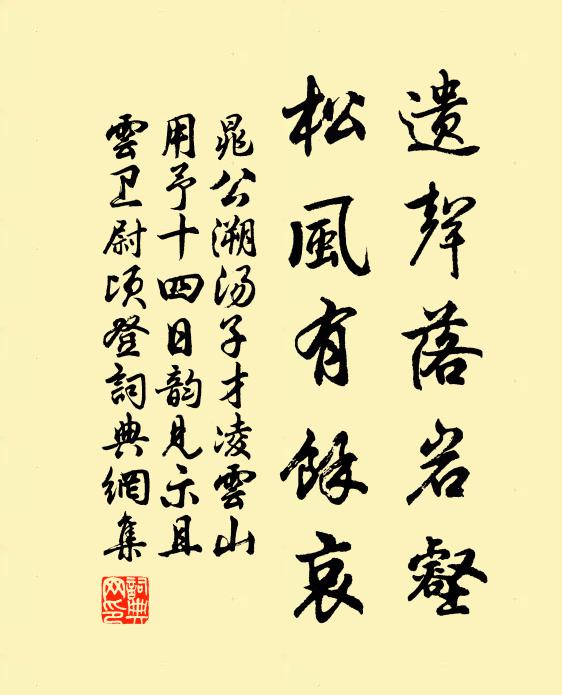 遺聲落岩壑
松風有餘哀
晁公溯汤子才凌雲山
用予十四日韵見示且
雲卫尉頃登詞典網集
詞典